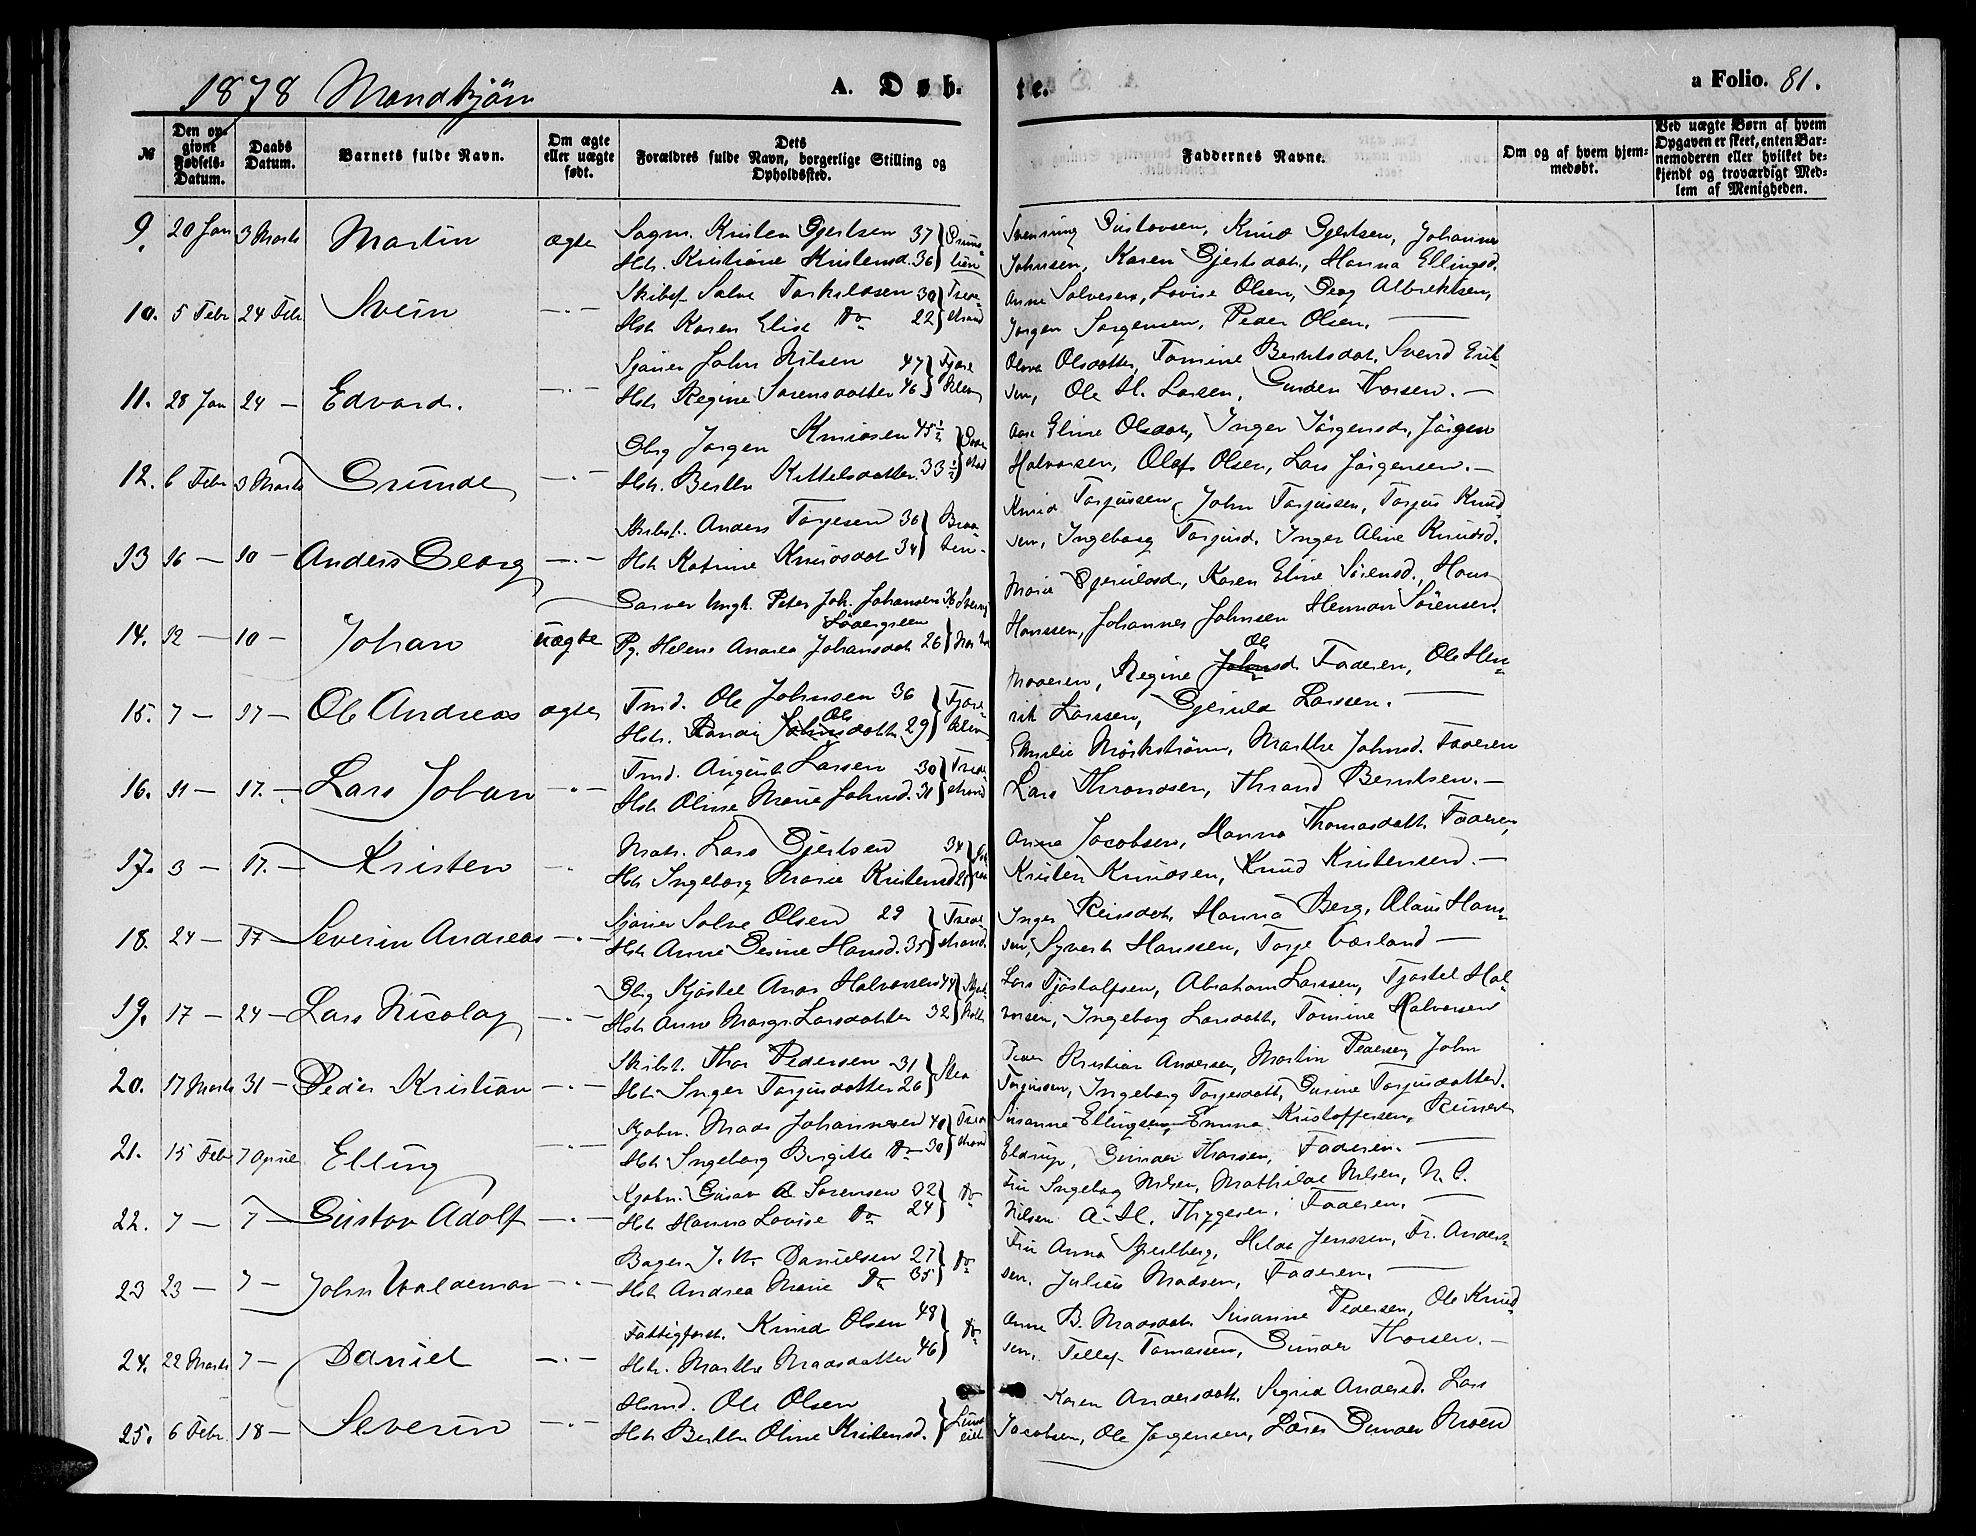 1878 Mandkjøn A. Døb- te. a Folio. 81.
№
Den op-
givne
Fødsels-
Datum.
Daabs
Datum.
Barnets fulde Navn.
Om ægte
eller uægte
født.
Dets
Forældres fulde Navn, borgerlige Stilling og
Opholdssted.
Faddernes Navne.
Om og af hvem hjem-
medøbt.
Ved uægte Børn af hvem
Opgaven er skeet, enten Bar-
nemoderen eller hvilket be-
kjendt og troværdigt Med-
lem af Menigheden.
9. 20 Jan 3 Marts Martin ægte
Kristen Gjertsen 37
Hst. Kristiane Kristensd. 36
Gustavsen, Knud Gjertsen, Johannes
Johnsen, Karen Gjertsdat., Hanna Ellingsd.
10. 5 Febr 24 Febr Svein —·—
Salve Torkildsen 30
Hst. Karen Elise Do 22
Anne Salvesen, Lovise Olsen, Georg Albrektsen,
Jørgen Jørgensen, Peder Olsen. —
11. 28 Jan 24 — Edvard. —·—
John Nilsen 47
Hst. Regine Sørensdatter 46
Olsdatter, Tomine Berntsdat. Svend Erik-
sen, Ole H. Larsen, Gunder Thorsen. —
12. 6 Febr 3 Marts Grunde —·—
Jørgen Knudsen 45½
Hst. Berthe Kittelsdatter 33½
Eline Olsdat, Inger Jørgensd., Jörgen
Halvorsen, Olaf Olsen, Lars Jörgensen. —
13 16 — 10 — Anders Georg —·—
Anders Torjesen 36
Hst Katrine Knudsdat 34
Knud Torjussen, John Torjussen, Torjus Knud-
sen, Ingeborg Torjusd. Inger Aline Knudsd.
14. 12 — 10 — Johan uægte
Ungk. Peter Joh. Johansen 26
Pg. Helene Andrea Johansdat 26
Marie Gjeruldsd., Karen Eline Sörensd., Hans
Hanssen, Johannes Johnsen Herman Sörensen.
15. 7 — 17 — Ole Andreas ægte
Tmd. Ole Johnsen 36
Hst. Randi Johnsdatt. Ole 29
Moderen, Regine Johnsd. Ole Faderen, Ole Hen-
rik Larssen, Gjeruld Larssen. —
16. 11 — 17. — Lars Johan —·—
Tmd. August Larsen 30
Hst. Oline Marie Johnsd. 31
Emilie Mörkström, Marthe Johnsd. Faderen
Lars Throndsen, Thrond Berntsen. —
17. 3 — 17. — Kristen —
Matr. Lars Gjertsen 34
Hst Ingeborg Marie Kristensd
Anna Jacobsen, Hanna Thomasdatt. Faderen,
Kristen Knudsen, Knud Kristensen. —
18. 24 — 17 — Severin Andreas —·—
Salve Olsen 29
Hst. Anne Gesine Hansd. 35
Inger Reiersdat, Hanna Berg, Olaus Hans-
sen, Syvert Hanssen, Torje Værland —
19. 17 — 24 — Lars Nicolay —·—
Kjöstel Anders Halvorsen 44
Hst. Anne Margr. Larsdatter 32
Lars Tjöstolfsen, Abraham Larssen, Tjöstel Hal-
vorsen, Ingeborg Larsdatt, Tomine Halvorsen
20. 17 Marts 31 — Peder Kristian —·—
Skibst. Thor Pedersen 31
Hst. Inger Torjusdatter 26
Kristian Andersen, Martin Pedersen, John
Torjussen, Ingeborg Torjusdatt, Gusine Torjusdatter.
21. 15 Febr 7 April Elling —·—
Kjøbm. Mads Johannesen 40
Hst Ingeborg Birgitte Do 30
Susanne Ellingsen, Emma Kristoffersen, Reinert
Eldrup, Gunder Thorsen, Faderen. —
22. 7 — 7 — Gustav Adolf —·—
Kjøbm. Gustav A Sörensen 32 Do
Hst Hanna Lovise Do 24
Fru Ingeborg Nilsen, Mathilde Nilsen, N. C.
Nilsen A. H. Thygesen, Faderen. —
23 23 — 7 — John Waldemar —·—
Bager J. W. Danielsen 27 Do
Hst Andrea Marie Do 35
Fru Anna Gjeilberg, Hilda Jenssen, Fr. Anders-
sen, Julius Madsen, Faderen. —
24. 22 Marts 7 — Daniel —·—
Fattigforst. Knud Olsen 48 Do
Hst. Marthe Madsdatter 46
Anne B. Madsdat. Susanne Pedersen, Ole Knud-
sen, Tellef Tomassen, Gunder Thorsen. —
25. 6 Febr. 18 — Severin —·—
Ole Olsen
Hst Berthe Oline Kristensd.
Karen Andersdatt. Sigrid Andersd. Lars
Jacobsen, Ole Jørgensen, Lærer Gunder Moen